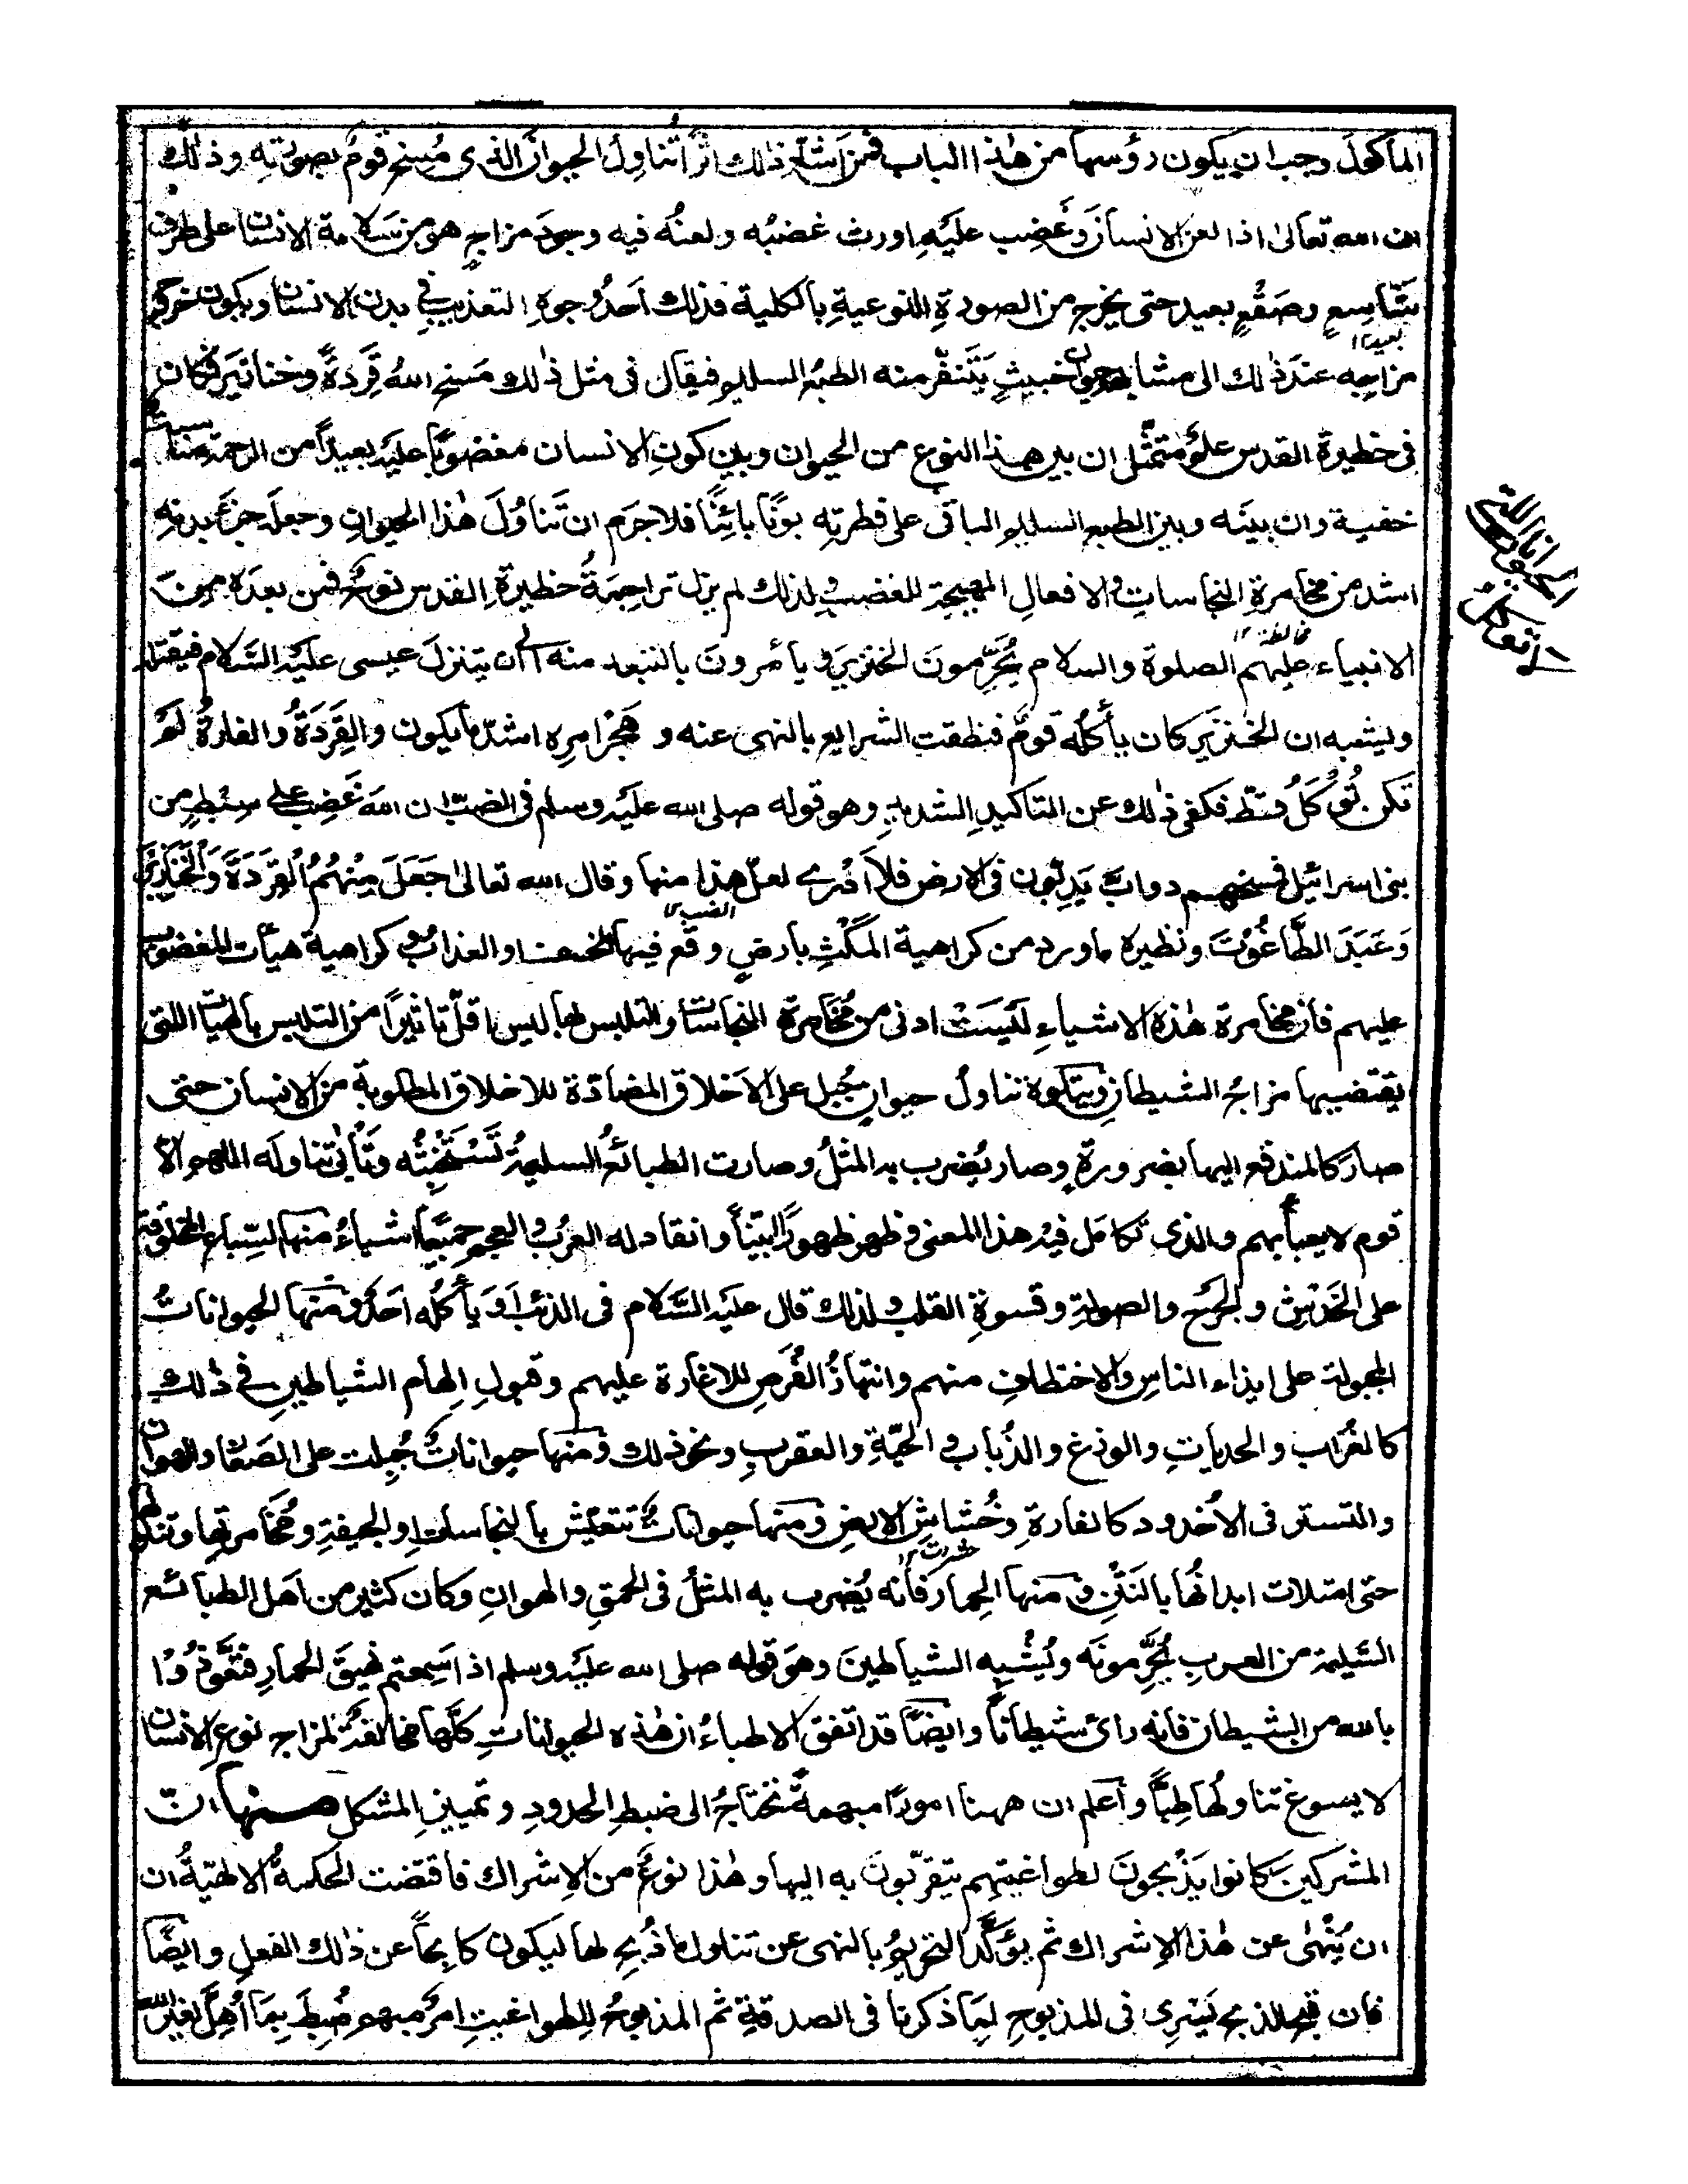 المأكول وجب ان يكون رؤسها من هذا الباب فمن اشد ذلك اثرا تناول الحيوان الذى مسخ قوم بصورته وذلك
ان الله تعالى اذا لعن الانسان وغضب عليه اورث غضبه ولعنه فيه وجود مزاج هو من سلامة الانسان على طرف
شاسع وصقع بعيد حتى يخرج من الصورة النوعية بالكلية فذلك احد وجوه التعذيب فى بدن الانسان ويكون خروج
بعيد ١٢
مزاجه عند ذلك الى مشابهة حيوان خبيث يتنفر منه الطبع السليم فيقال فى مثل ذلك مسخ الله قردة وخنازير فكان
فى حظيرة القدس علم متمثل ان بين هذا النوع من الحيوان وبين كون الانسان مغضوبا عليه بعيدا من الرحمة مناسبة
خفية وان بينه وبين الطبع السليم الباقى على فطرته بونا بائنا فلا جرم ان تناول هذا الحيوان وجعله جزء بدنه
اشد من مخامرة النجاسات والافعال المهيجة للغضب ولذلك لم يزل تراجمة حظيرة القدس نوح فمن بعده من
مخالطة ١٢
الانبياء عليهم الصلوة والسلام يحرمون الخنزير ويأمرون بالتبعد منه الى ان ينزل عيسى عليه السلام فيقتله
ويشبه ان الخنزير كان يأكله قوم فنطقت الشرايع بالنهى عنه وهجر امره اشد ما يكون والقردة والفارة لم
تكن تؤكل قط فكفى ذلك عن التاكيد الشديد وهو قوله صلى الله عليه وسلم فى الضب ان الله غضب على سبط من
بنى اسرائيل فمسخهم دواب يدبون فى الارض فلا ادرى لعل هذا منها وقال الله تعالى جعل منهم القردة والخنازير
الضب ١٢
وعبد الطاغوت ونظيره ما ورد من كراهية المكث بارض وقع فيها الخسف او العذاب وكراهية هيأت المغضوب
عليهم فان مخامرة هذه الاشياء ليست ادنى من مخامرة النجاسات والتلبس بها ليس اقل تاثيرا من التلبس بالهيأت التى
يقتضيها مزاج الشيطان ويتلوه تناول حيوان جبل على الاخلاق المضادة للاخلاق المطلوبة من الانسان حتى
صار كالمندفع اليها بضرورة وصار يضرب به المثل وصارت الطبائع السليمة تستخبثه وتأبى تناوله اللهم الا
قوم لا يعبأ بهم والذى تكامل فيه هذا المعنى وظهر ظهورا بينا وانقاد له العرب والعجم جميعا اشياء منها السباع المخلوقة
على الخدش والجرح والصولة وقسوة القلب ولذلك قال عليه السلام فى الذئب او يأكله احد ومنها الحيوانات
المجبولة على ايذاء الناس والاختطاف منهم وانتهاز الفرص للاغارة عليهم وقبول الهام الشياطين فى ذلك
كالغراب والحديات والوزغ والذباب والحية والعقرب ونحو ذلك ومنها حيوانات جبلت على الصغار والهوان
والتستر فى الاخدود كالفارة وخشاش الارض ومنها حيوانات تتعيش بالنجاسات او الجيفة ومخامرتها وتناولها
حشرات ١٢
حتى امتلات ابدانها بالنتن ومنها الحمار فانه يضرب به المثل فى الحمق والهوان وكان كثير من اهل الطبائع
السليمة من العرب يحرمونه ويشبه الشياطين وهو قوله صلى الله عليه وسلم اذا سمعتم نهيق الحمار فتعوذوا
بالله من الشيطان فانه راى شيطانا وايضا قد اتفق الاطباء ان هذه الحيوانات كلها مخالفة لمزاج نوع الانسان
لا يسوغ تناولها طبا واعلم ان ههنا امورا مبهمة تحتاج الى ضبط الحدود وتمييز المشكل منها ان
المشركين كانوا يذبحون لطواغيتهم يتقربون به اليها وهذا نوع من الاشراك فاقتضت الحكمة الالهية ان
ان ينهى عن هذا الاشراك ثم يؤكد التحريم بالنهى عن تناول ما ذبح لها ليكون كابحا عن ذلك الفعل وايضا
فان قبح الذبح يسرى فى المذبوح لما ذكرنا فى الصدقة ثم المذبوح للطواغيت امر مبهم ضبط بما اهل لغير الله